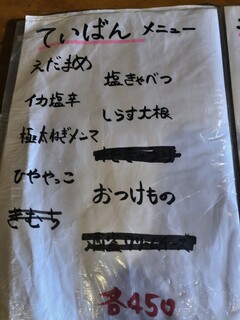 ていばん メニュー
えだまめ
イカ塩辛
極太ねぎメンマ
ひややっこ
きむち
塩きゃべつ
しらす大根
おつけもの
各450